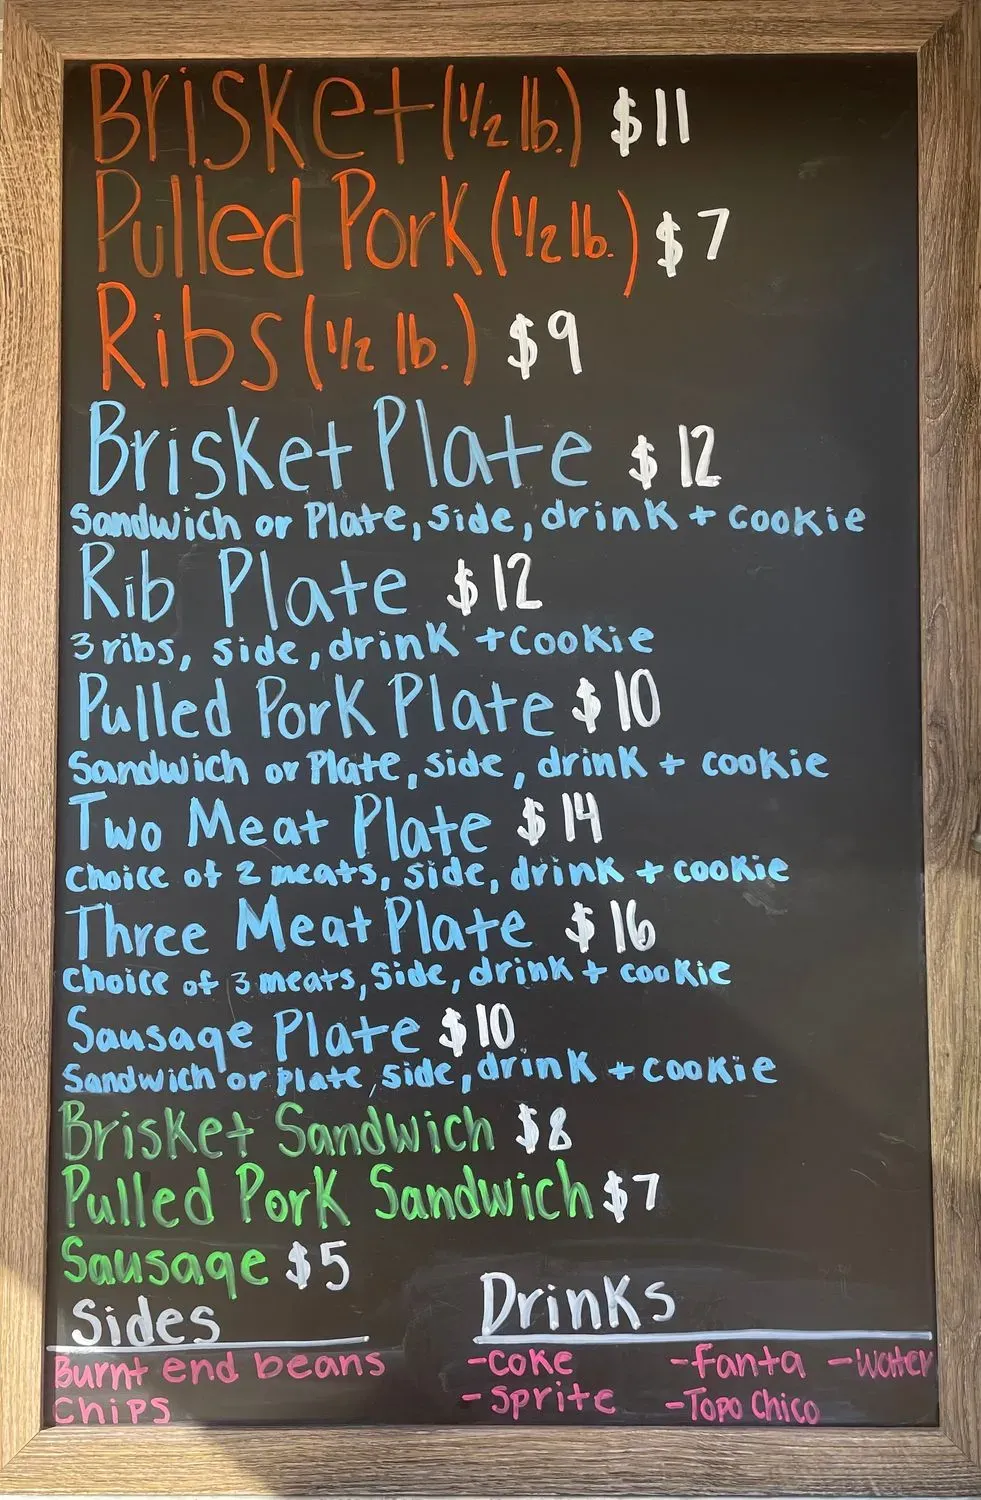 Brisket (1/2 lb.) $11
Pulled Pork (1/2 lb.) $7
Ribs (1/2 lb.) $9
Brisket Plate $12
Sandwich or Plate, side, drink + cookie
Rib Plate $12
3 ribs, side, drink + cookie
Pulled Pork Plate $10
Sandwich or Plate, side, drink + cookie
Two Meat Plate $14
choice of 2 meats, side, drink + cookie
Three Meat Plate $16
choice of 3 meats, side, drink + cookie
Sausage Plate $10
Sandwich or plate, side, drink + cookie
Brisket Sandwich $8
Pulled Pork Sandwich $7
Sausage $5
Sides
Burnt end beans
chips
Drinks
-Coke -Fanta -Water
-Sprite -Topo Chico